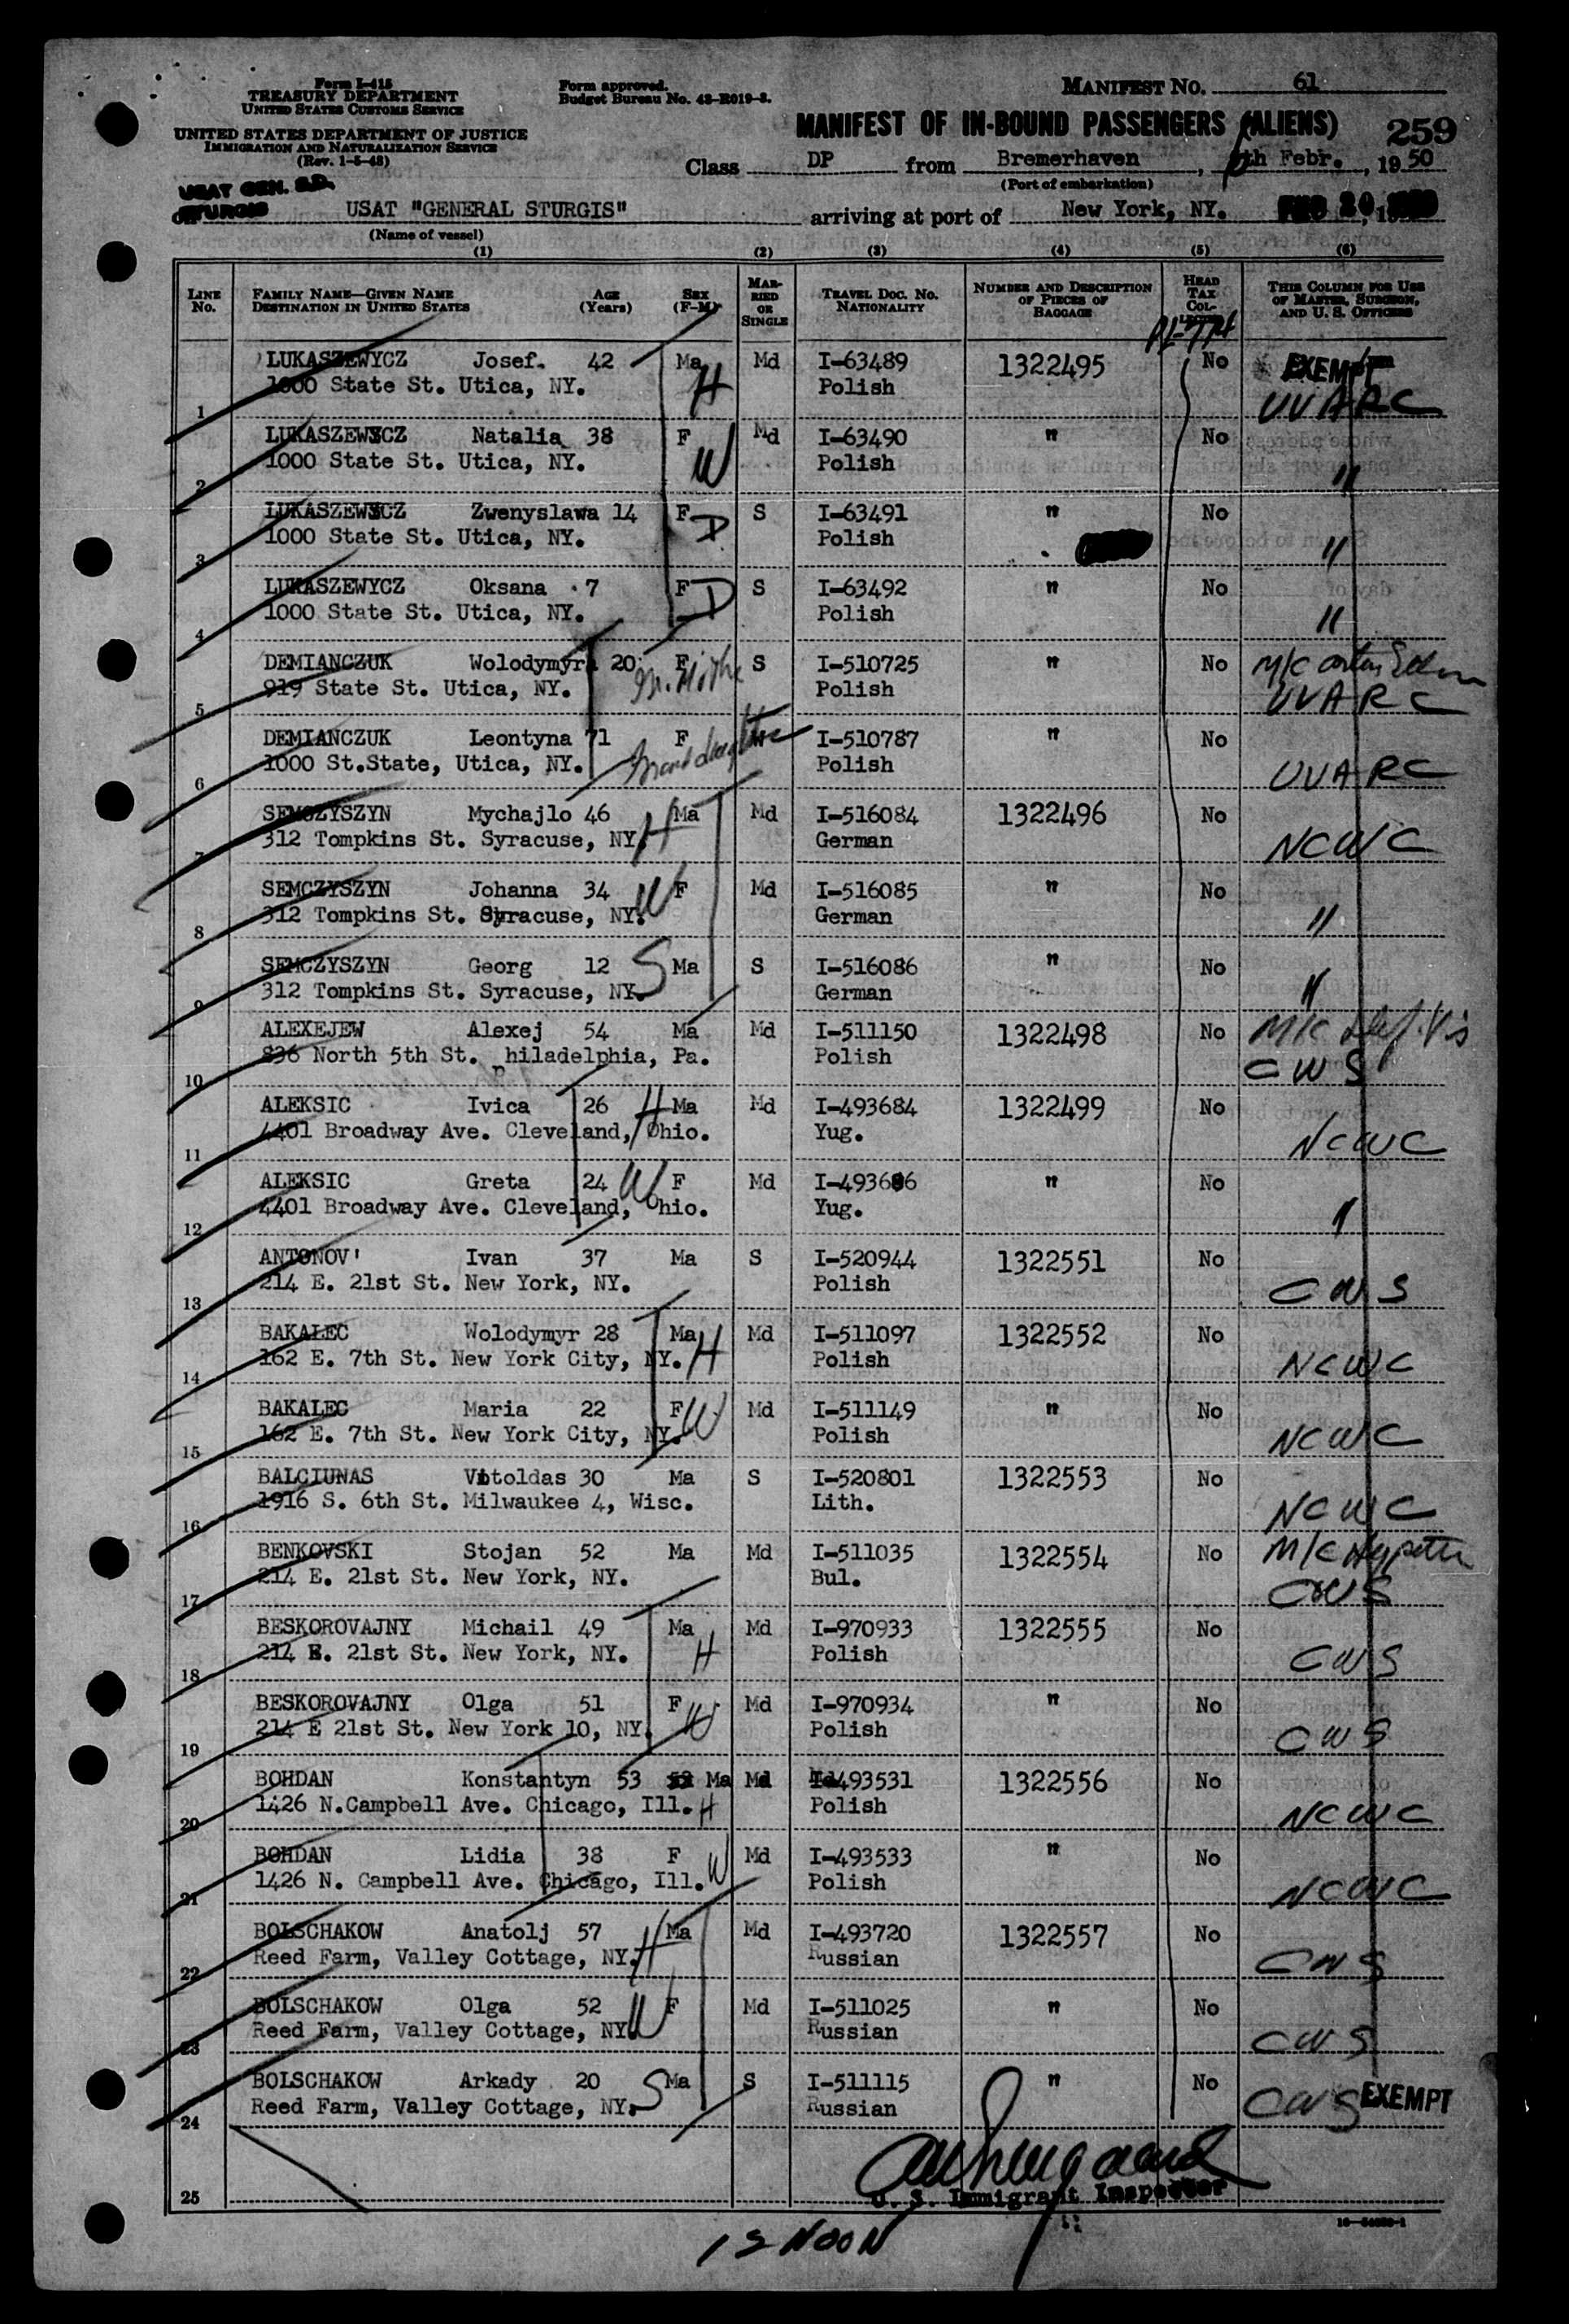 Form I-415
TREASURY DEPARTMENT
UNITED STATES CUSTOMS SERVICE
UNITED STATES DEPARTMENT OF JUSTICE
IMMIGRATION AND NATURALIZATION SERVICE
(Rev. 1-5-48)
Form approved.
Budget Bureau No. 43-R019-3.
MANIFEST NO. 61
MANIFEST OF IN-BOUND PASSENGERS (ALIENS) 259
Class DP from Bremerhaven, th Febr., 1950
(Port of embarkation)
USAT GEN. S.D.
STURGIS USAT "GENERAL STURGIS" arriving at port of New York, NY. FEB 20, 1950
(Name of vessel)
(1) (2) (3) (4) (5) (6)
LINE No. FAMILY NAME—GIVEN NAME DESTINATION IN UNITED STATES AGE (Years) SEX (F-M) MARRIED OR SINGLE TRAVEL DOC. NO. NATIONALITY NUMBER AND DESCRIPTION OF PIECES OF BAGGAGE HEAD TAX COLLECTED THIS COLUMN FOR USE OF MASTER, SURGEON, AND U. S. OFFICERS
LUKASZEWYCZ Josef. 42 Ma Md I-63489 1322495 No EXEMPT
1 1000 State St. Utica, NY. H Polish UVARC
LUKASZEWYCZ Natalia 38 F Md I-63490 " No
2 1000 State St. Utica, NY. W Polish "
LUKASZEWYCZ Zwenyslawa 14 F S I-63491 " No
3 1000 State St. Utica, NY. D Polish "
LUKASZEWYCZ Oksana 7 F S I-63492 " No
4 1000 State St. Utica, NY. D Polish "
DEMIANCZUK Wolodymyra 20 F S I-510725 " No M/C
5 919 State St. Utica, NY. Polish UVARC
DEMIANCZUK Leontyna 71 F W I-510787 " No
6 1000 St.State, Utica, NY. Grand daughter Polish UVARC
SEMCZYSZYN Mychajlo 46 Ma Md I-516084 1322496 No
7 312 Tompkins St. Syracuse, NY. H German NCWC
SEMCZYSZYN Johanna 34 F Md I-516085 " No
8 312 Tompkins St. Syracuse, NY. W German "
SEMCZYSZYN Georg 12 Ma S I-516086 " No
9 312 Tompkins St. Syracuse, NY. S German "
ALEXEJEW Alexej 54 Ma Md I-511150 1322498 No M/C Def. Vis
10 836 North 5th St. Philadelphia, Pa. Polish CWS
ALEKSIC Ivica 26 H Ma Md I-493684 1322499 No
11 4401 Broadway Ave. Cleveland, Ohio. Yug. NCWC
ALEKSIC Greta 24 W F Md I-493686 " No
12 4401 Broadway Ave. Cleveland, Ohio. Yug. "
ANTONOV' Ivan 37 Ma S I-520944 1322551 No
13 214 E. 21st St. New York, NY. Polish CWS
BAKALEC Wolodymyr 28 Ma Md I-511097 1322552 No
14 162 E. 7th St. New York City, NY. H Polish NCWC
BAKALEC Maria 22 F W Md I-511149 " No
15 162 E. 7th St. New York City, NY. Polish NCWC
BALCIUNAS Vitoldas 30 Ma S I-520801 1322553 No
16 1916 S. 6th St. Milwaukee 4, Wisc. Lith. NCWC
BENKOVSKI Stojan 52 Ma Md I-511035 1322554 No M/C
17 214 E. 21st St. New York, NY. Bul. CWS
BESKOROVAJNY Michail 49 Ma Md I-970933 1322555 No
18 214 E. 21st St. New York, NY. H Polish CWS
BESKOROVAJNY Olga 51 F Md I-970934 " No
19 214 E 21st St. New York 10, NY. W Polish CWS
BOHDAN Konstantyn 53 Ma Md I-493531 1322556 No
20 1426 N.Campbell Ave. Chicago, Ill. H Polish NCWC
BOHDAN Lidia 38 F Md I-493533 " No
21 1426 N. Campbell Ave. Chicago, Ill. W Polish NCWC
BOLSCHAKOW Anatolj 57 Ma Md I-493720 1322557 No
22 Reed Farm, Valley Cottage, NY. H Russian CWS
BOLSCHAKOW Olga 52 F Md I-511025 " No
23 Reed Farm, Valley Cottage, NY. W Russian CWS
BOLSCHAKOW Arkady 20 Ma S I-511115 " No
24 Reed Farm, Valley Cottage, NY. S Russian CWS EXEMPT
25 U. S. Immigrant Inspector
12 NOON